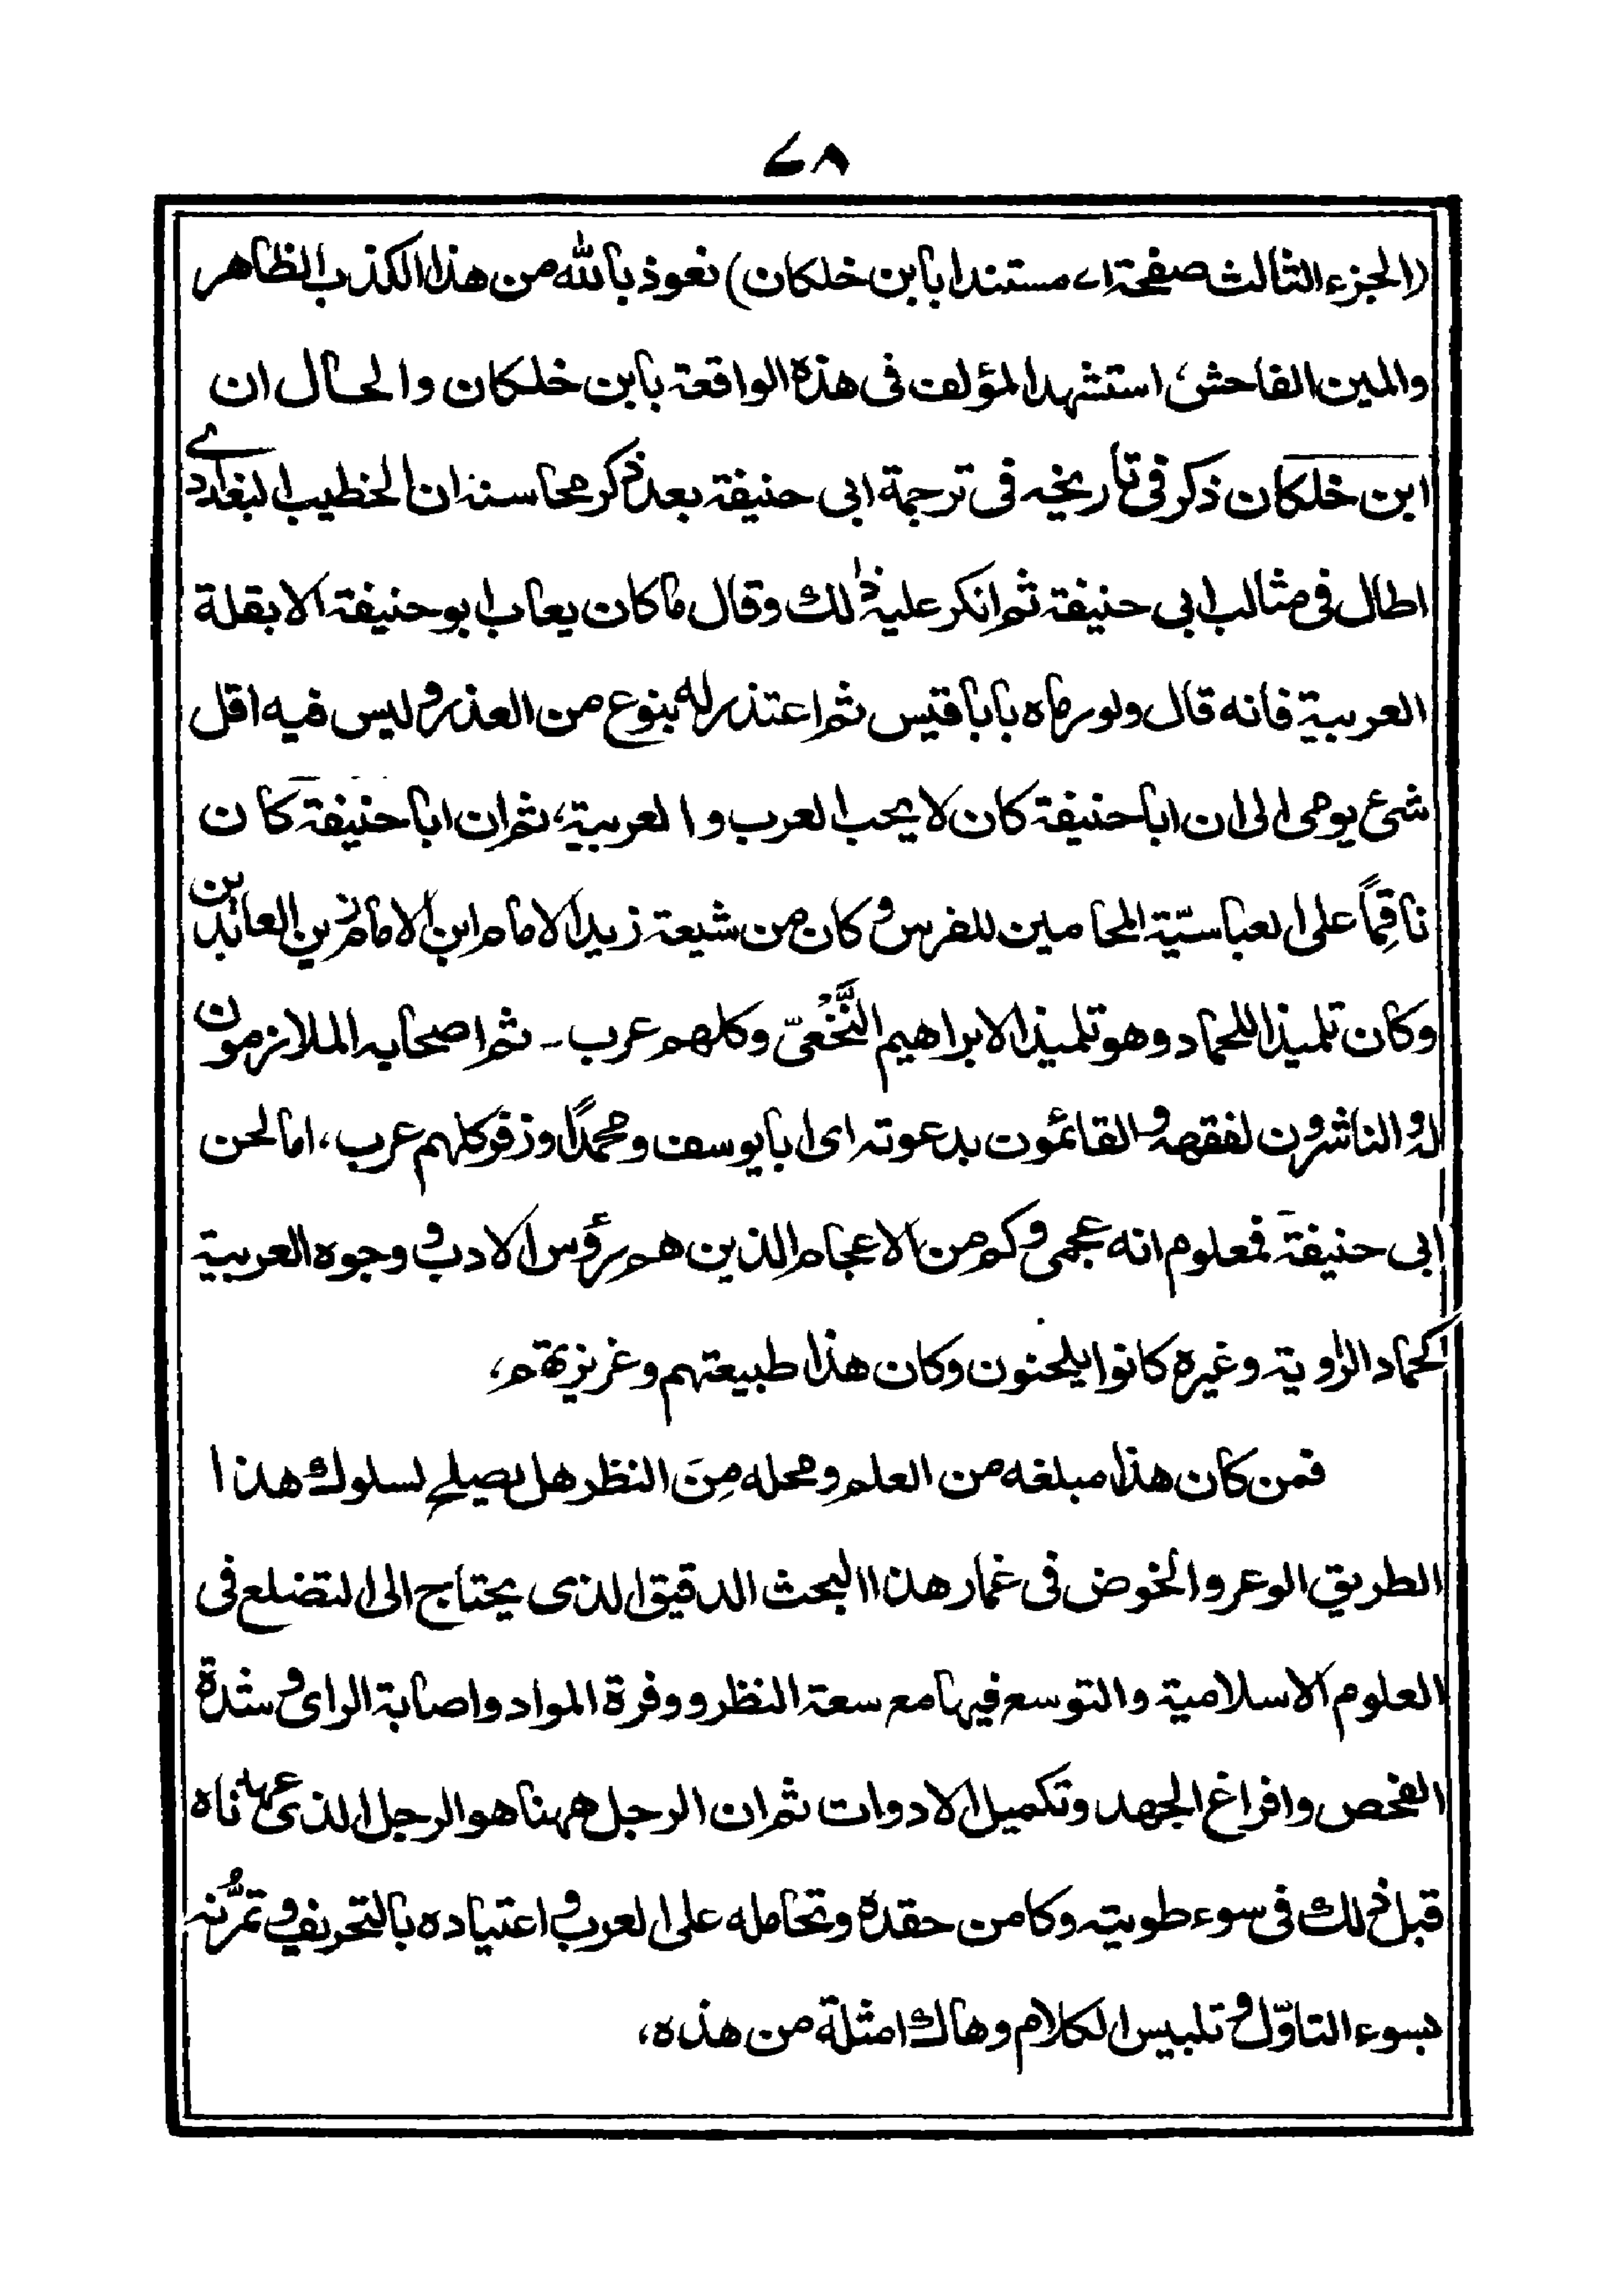 ٦٨
(الجزء الثالث صفحة ٧١ مستندا بابن خلكان) نعوذ بالله من هذا الكذب الظاهر
والمين الفاحش، استشهد المؤلف فى هذه الواقعة بابن خلكان والحال ان
ابن خلكان ذكر فى تاريخه فى ترجمة ابى حنيفة بعد ذكر محاسنه ان الخطيب البغدادى
اطال فى مثالب ابى حنيفة ثم انكر عليه ذلك وقال ما كان يعاب ابو حنيفة الا بقلة
العربية فانه قال ولو رماه بابا قتيس ثم اعتذر له بنوع من العذر وليس فيه اقل
شئ يومى الى ان ابا حنيفة كان لا يحب العرب والعربية، ثم ان ابا حنيفة كان
ناقِمًا على العباسيّة المحامين للفرس وكان من شيعة زيد الامام ابن الامام زين العابدين
وكان تلميذا للحماد وهو تلميذ الابراهيم النَّخْعىّ وكلهم عرب ـ ثم اصحابه الملازمون
له والناشرون لفقهه والقائمون بدعوته اى ابا يوسف ومحمدًا وزفر كلهم عرب، اما لحن
ابى حنيفة فمعلوم انه عجمى وكم من الاعجام الذين هم رؤس الادب ووجوه العربية
كحماد الراوية وغيره كانوا يلحنون وكان هذا طبيعتهم وغريزتهم،
فمن كان هذا مبلغه من العلم ومحله مِنَ النظر هل يصلح لسلوك هذا
الطريق الوعر والخوض فى غمار هذا البحث الدقيق الذى يحتاج الى التضلع فى
العلوم الاسلامية والتوسع فيها مع سعة النظر ووفرة المواد واصابة الراى وشدة
الفحص وافراغ الجهد وتكميل الادوات ثم ان الرجل ههنا هو الرجل الذى عهدناه
قبل ذلك فى سوء طويته وكامن حقده وتحامله على العرب واعتياده بالتحريف وتمرُّنه
بسوء التاوّل وتلبيس الكلام وهاك امثلة من هذه،